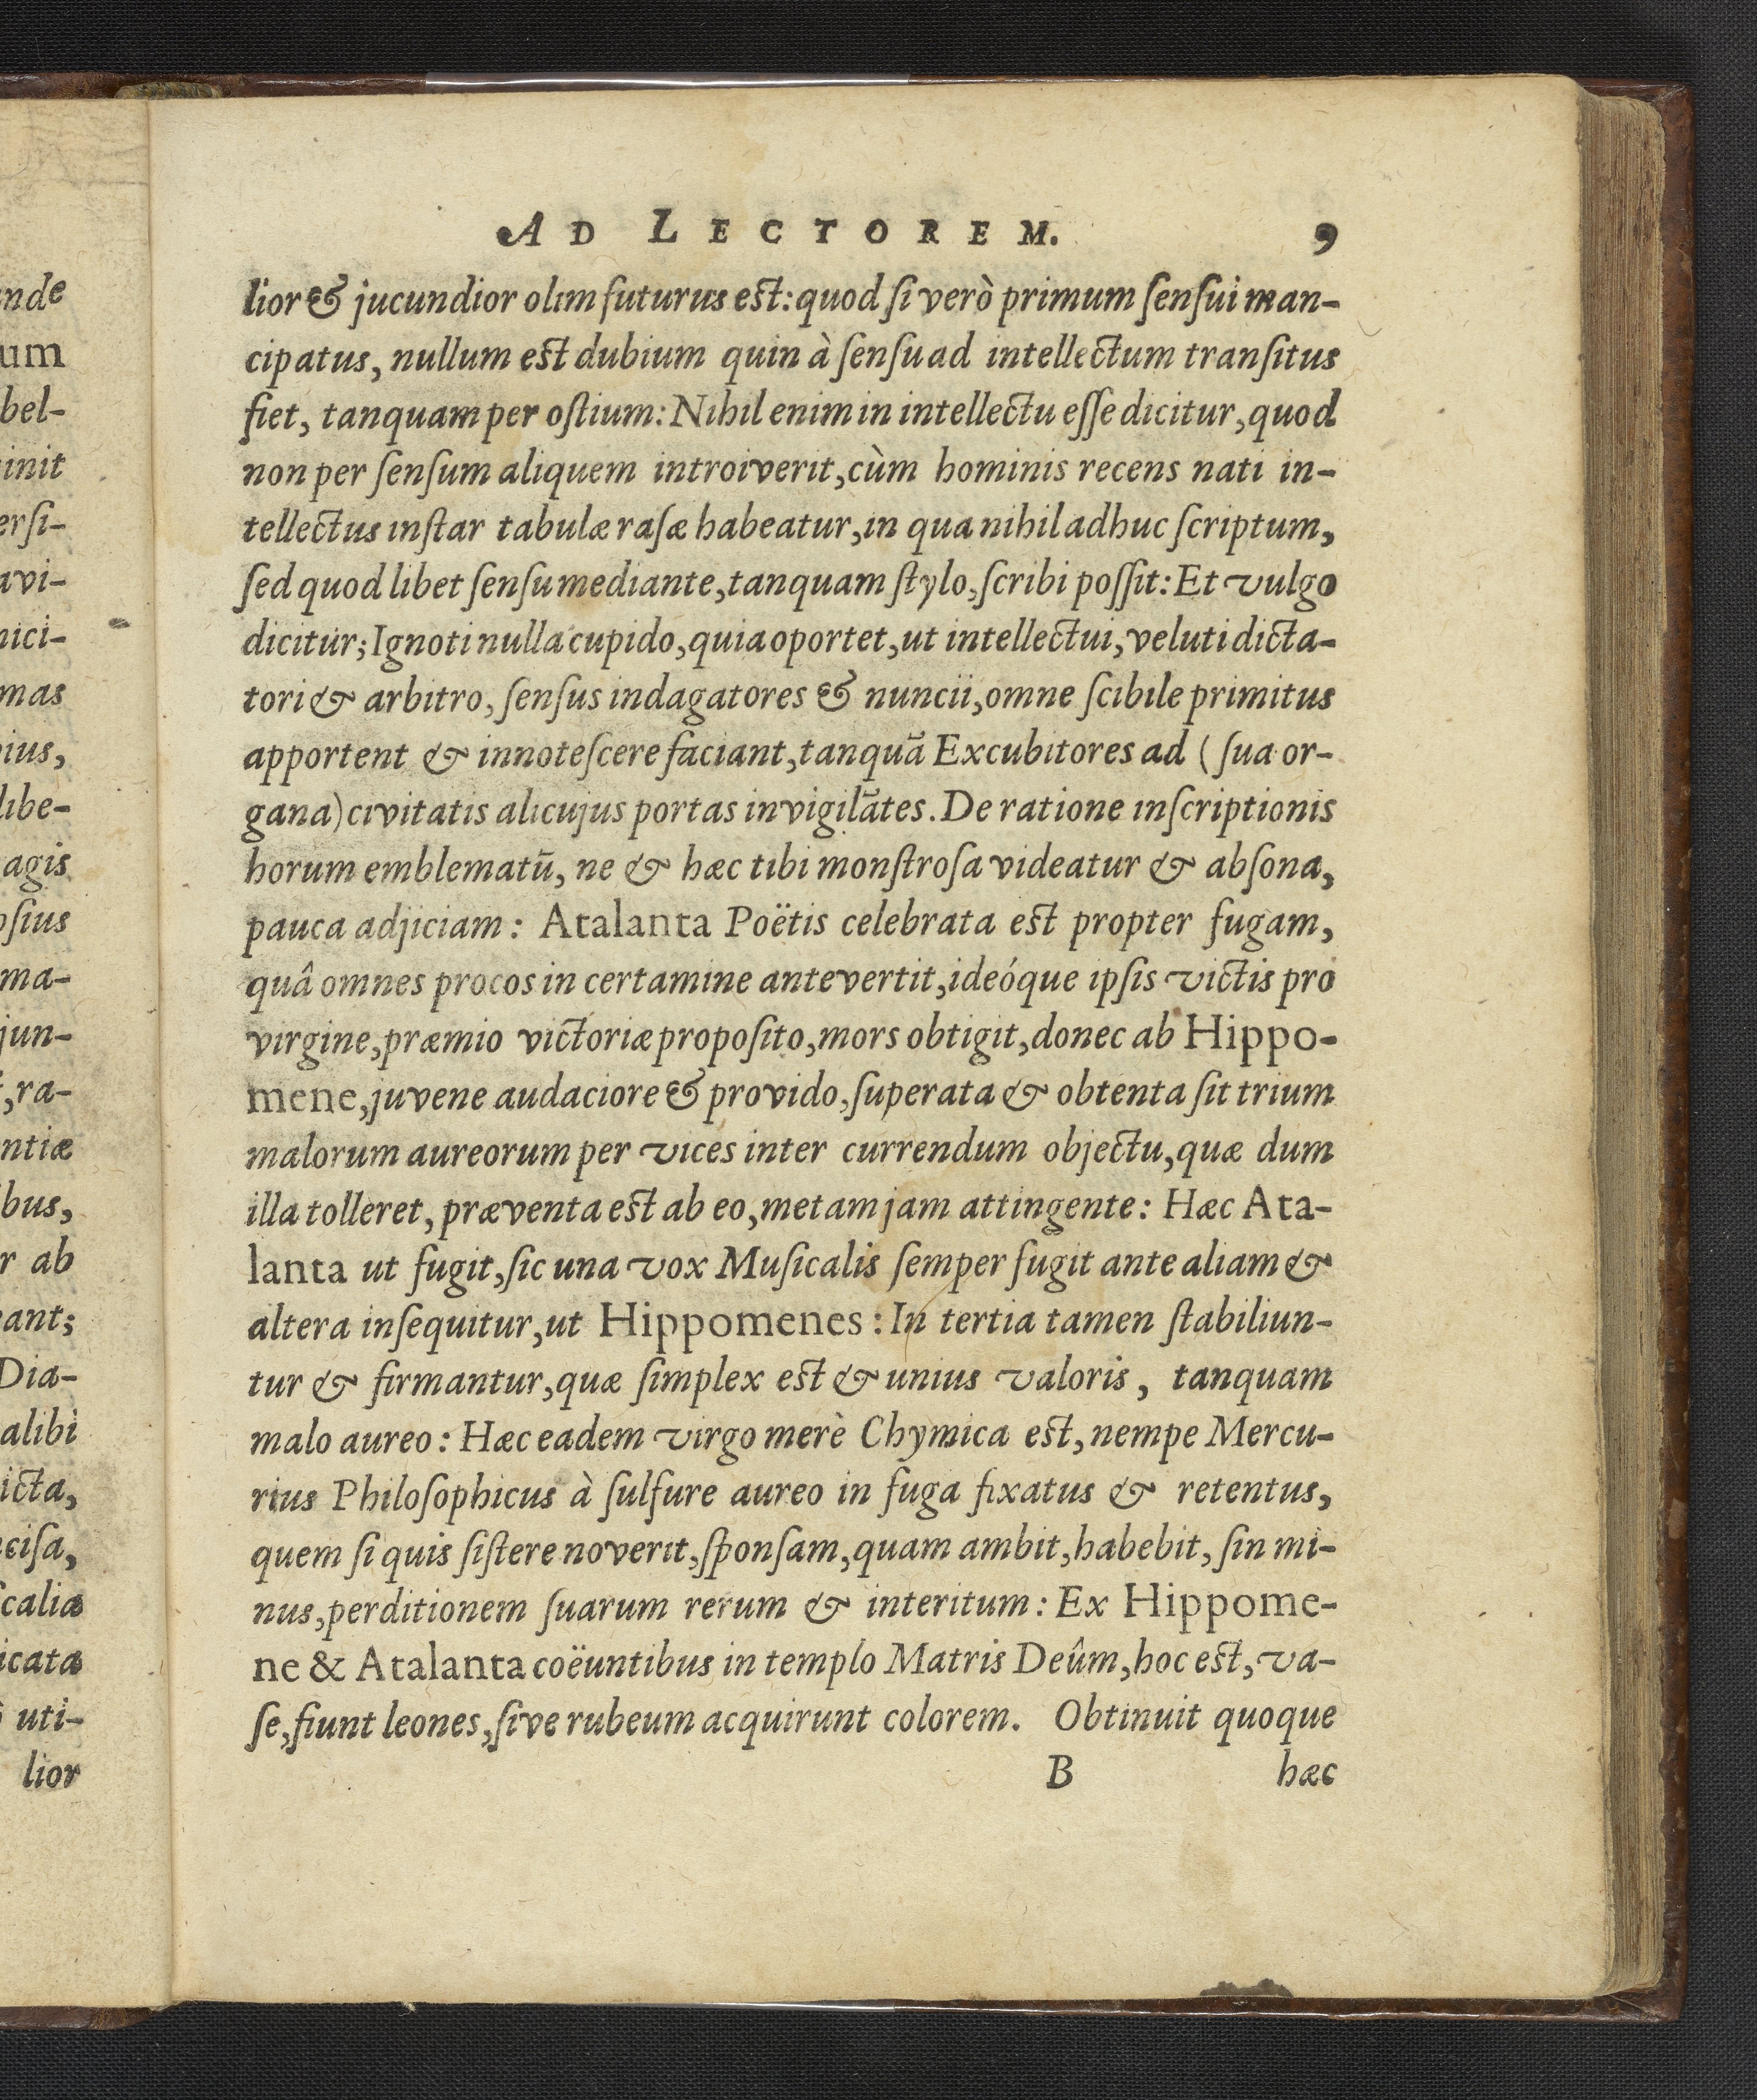 AD LECTOREM. 9
lior & jucundior olim futurus est: quod si verò primum sensui man-
cipatus, nullum est dubium quin à sensu ad intellectum transitus
fiet, tanquam per ostium: Nihil enim in intellectu esse dicitur, quod
non per sensum aliquem introiverit, cùm hominis recens nati in-
tellectus instar tabulæ rasæ habeatur, in qua nihil adhuc scriptum,
sed quod libet sensu mediante, tanquam stylo, scribi possit: Et vulgo
dicitur; Ignoti nulla cupido, quia oportet, ut intellectui, veluti dicta-
tori & arbitro, sensus indagatores & nuncii, omne scibile primitus
apportent & innotescere faciant, tanquā Excubitores ad ( sua or-
gana) civitatis alicujus portas invigilātes. De ratione inscriptionis
horum emblematū, ne & hæc tibi monstrosa videatur & absona,
pauca adjiciam: Atalanta Poëtis celebrata est propter fugam,
quâ omnes procos in certamine antevertit, ideóque ipsis victis pro
virgine, præmio victoriæ proposito, mors obtigit, donec ab Hippo-
mene, juvene audaciore & provido, superata & obtenta sit trium
malorum aureorum per vices inter currendum objectu, quæ dum
illa tolleret, præventa est ab eo, metam jam attingente: Hæc Ata-
lanta ut fugit, sic una vox Musicalis semper fugit ante aliam &
altera insequitur, ut Hippomenes: In tertia tamen stabiliun-
tur & firmantur, quæ simplex est & unius valoris, tanquam
malo aureo: Hæc eadem virgo merè Chymica est, nempe Mercu-
rius Philosophicus à sulfure aureo in fuga fixatus & retentus,
quem si quis sistere noverit, sponsam, quam ambit, habebit, sin mi-
nus, perditionem suarum rerum & interitum: Ex Hippome-
ne & Atalanta coëuntibus in templo Matris Deûm, hoc est, va-
se, fiunt leones, sive rubeum acquirunt colorem. Obtinuit quoque
B hæc